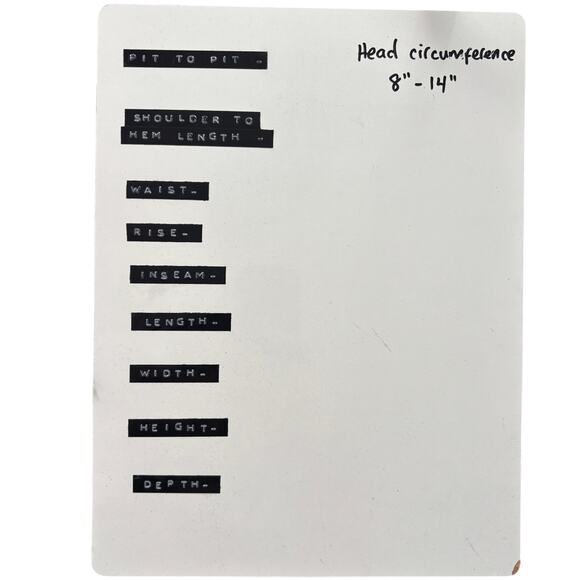 PIT TO PIT -
Head circumference
8" - 14"
SHOULDER TO
HEM LENGTH -
WAIST-
RISE-
INSEAM-
LENGTH-
WIDTH-
HEIGHT-
DEPTH-